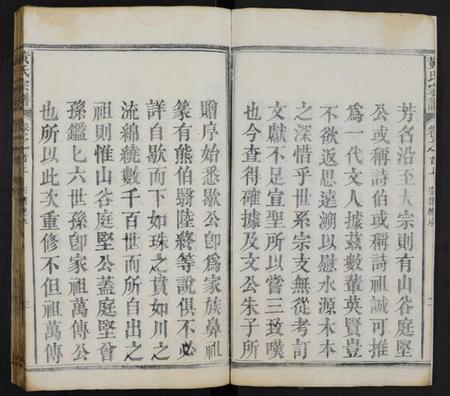 黃氏宗譜
卷之首上
芳名沿至大宗則有山谷庭堅
公或稱詩伯或稱詩祖誠可推
為一代文人據茲數輩英賢豈
不欲返思遠溯以慰水源木本
之深惜乎世系宗支無從考訂
文獻不足宣聖所以嘗三致嘆
也今查得確據及文公朱子所
贈序始悉歇公卽為家族鼻祖
篆有熊伯翳陸終等說俱不必
詳自歇而下如珠之貫如川之
流綿繞數千百世而所自出之
祖則惟山谷庭堅公蓋庭堅曾
孫鑑匕六世孫卽家祖萬傳公
也所以此次重修不但祖萬傳
黃氏宗譜
卷之首上